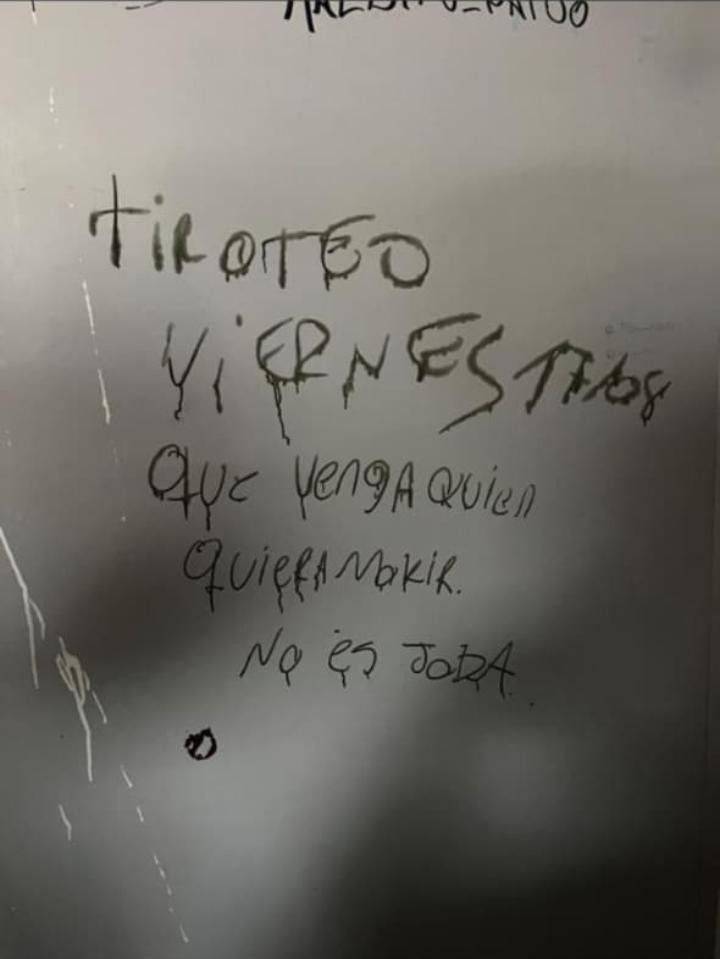 tiROTEO
ViERNES 17/08
QUE VengA QUIEn
QUIERA MORIR.
NO ES JODA.